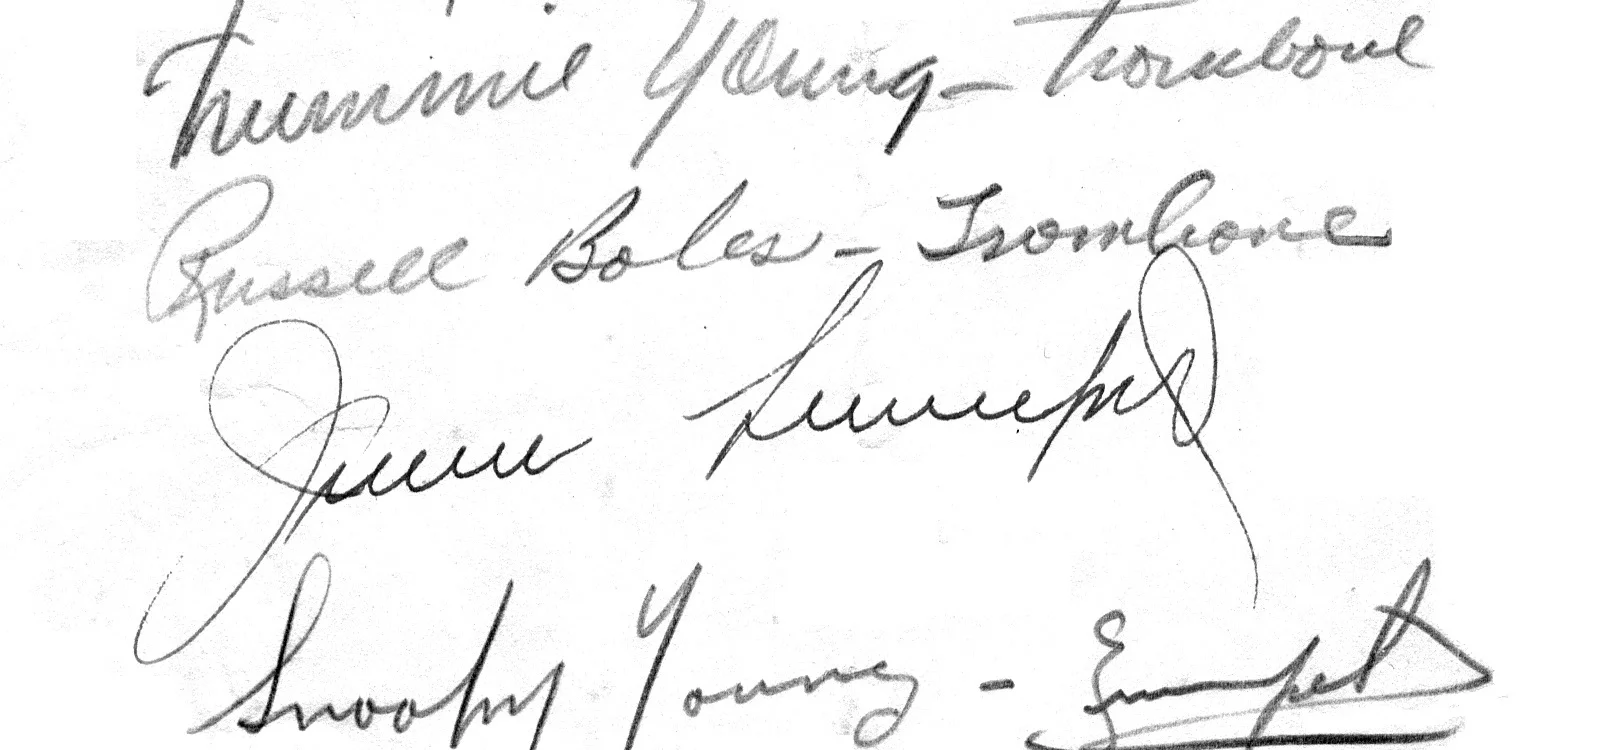 Trummie Young – Trombone
Russell Boles – Trombone
Snooky Young – Trumpet